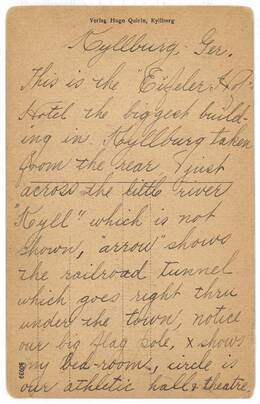 Verlag Hugo Quirin, Kyllburg
Kyllburg, Ger.
This is the "Eifeler-Hof"
Hotel the biggest build-
ing in Kyllburg taken
from the rear & just
across the little river
"Kyll" which is not
shown, "arrow" shows
the railroad tunnel
which goes right thru
under the town, notice
our big flag pole, x shows
my bed-room, circle is
our athletic hall & theatre